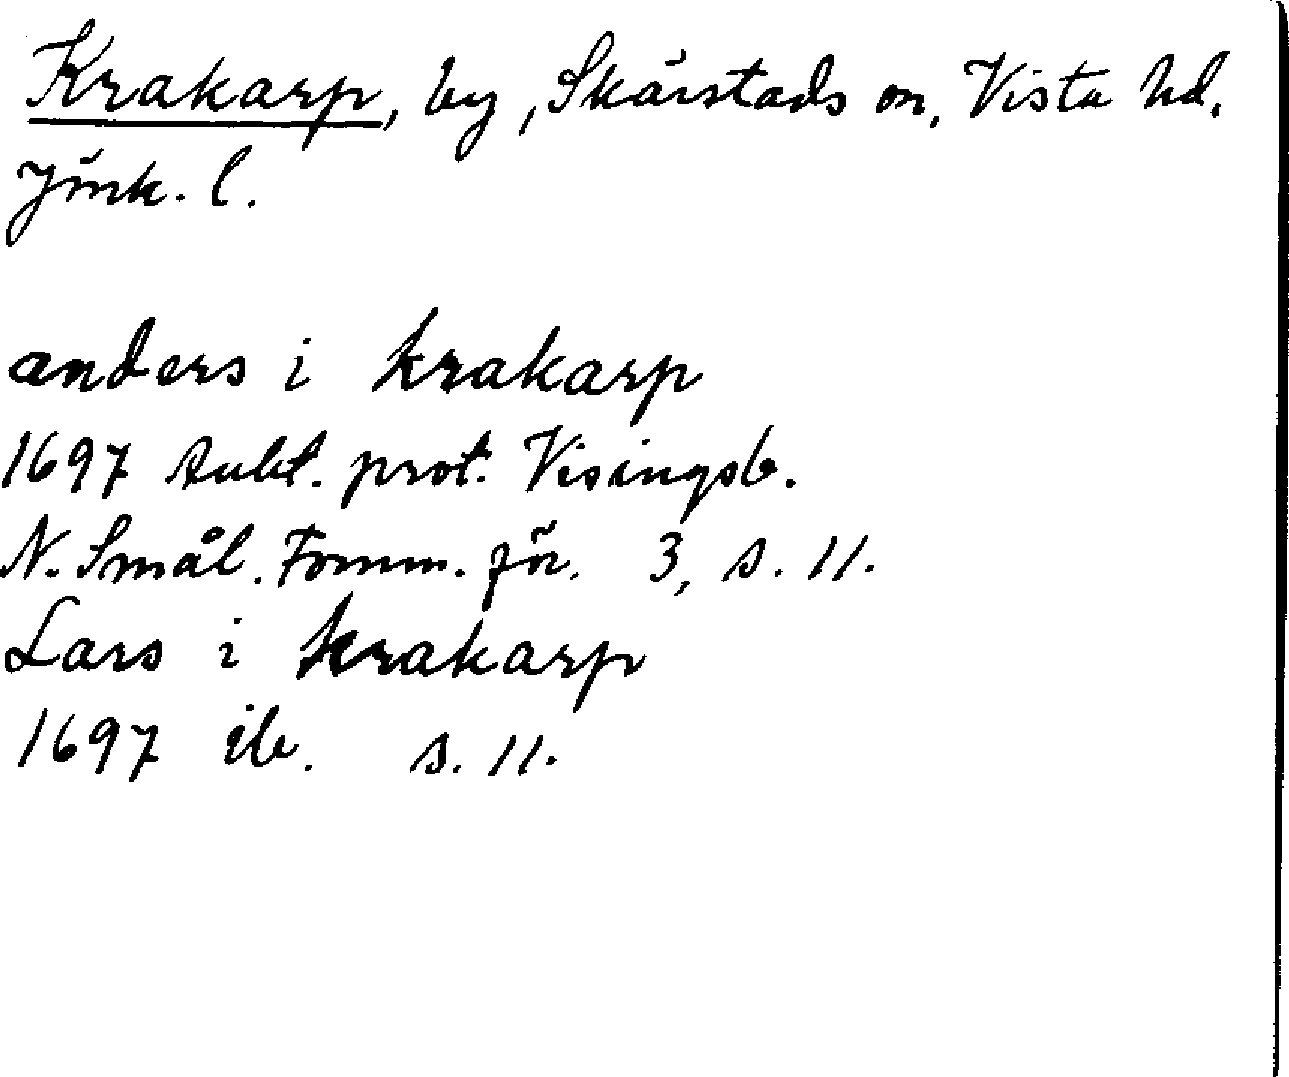 Krakarp, by, Skärstads sn, Vista hd.
Jönk. l.
anders i krakarp
1697 Aukt. prot. Visingsb.
N. Smål. Fornm. för. 3, s. 11.
Lars i krakarp
1697 ib. s. 11.